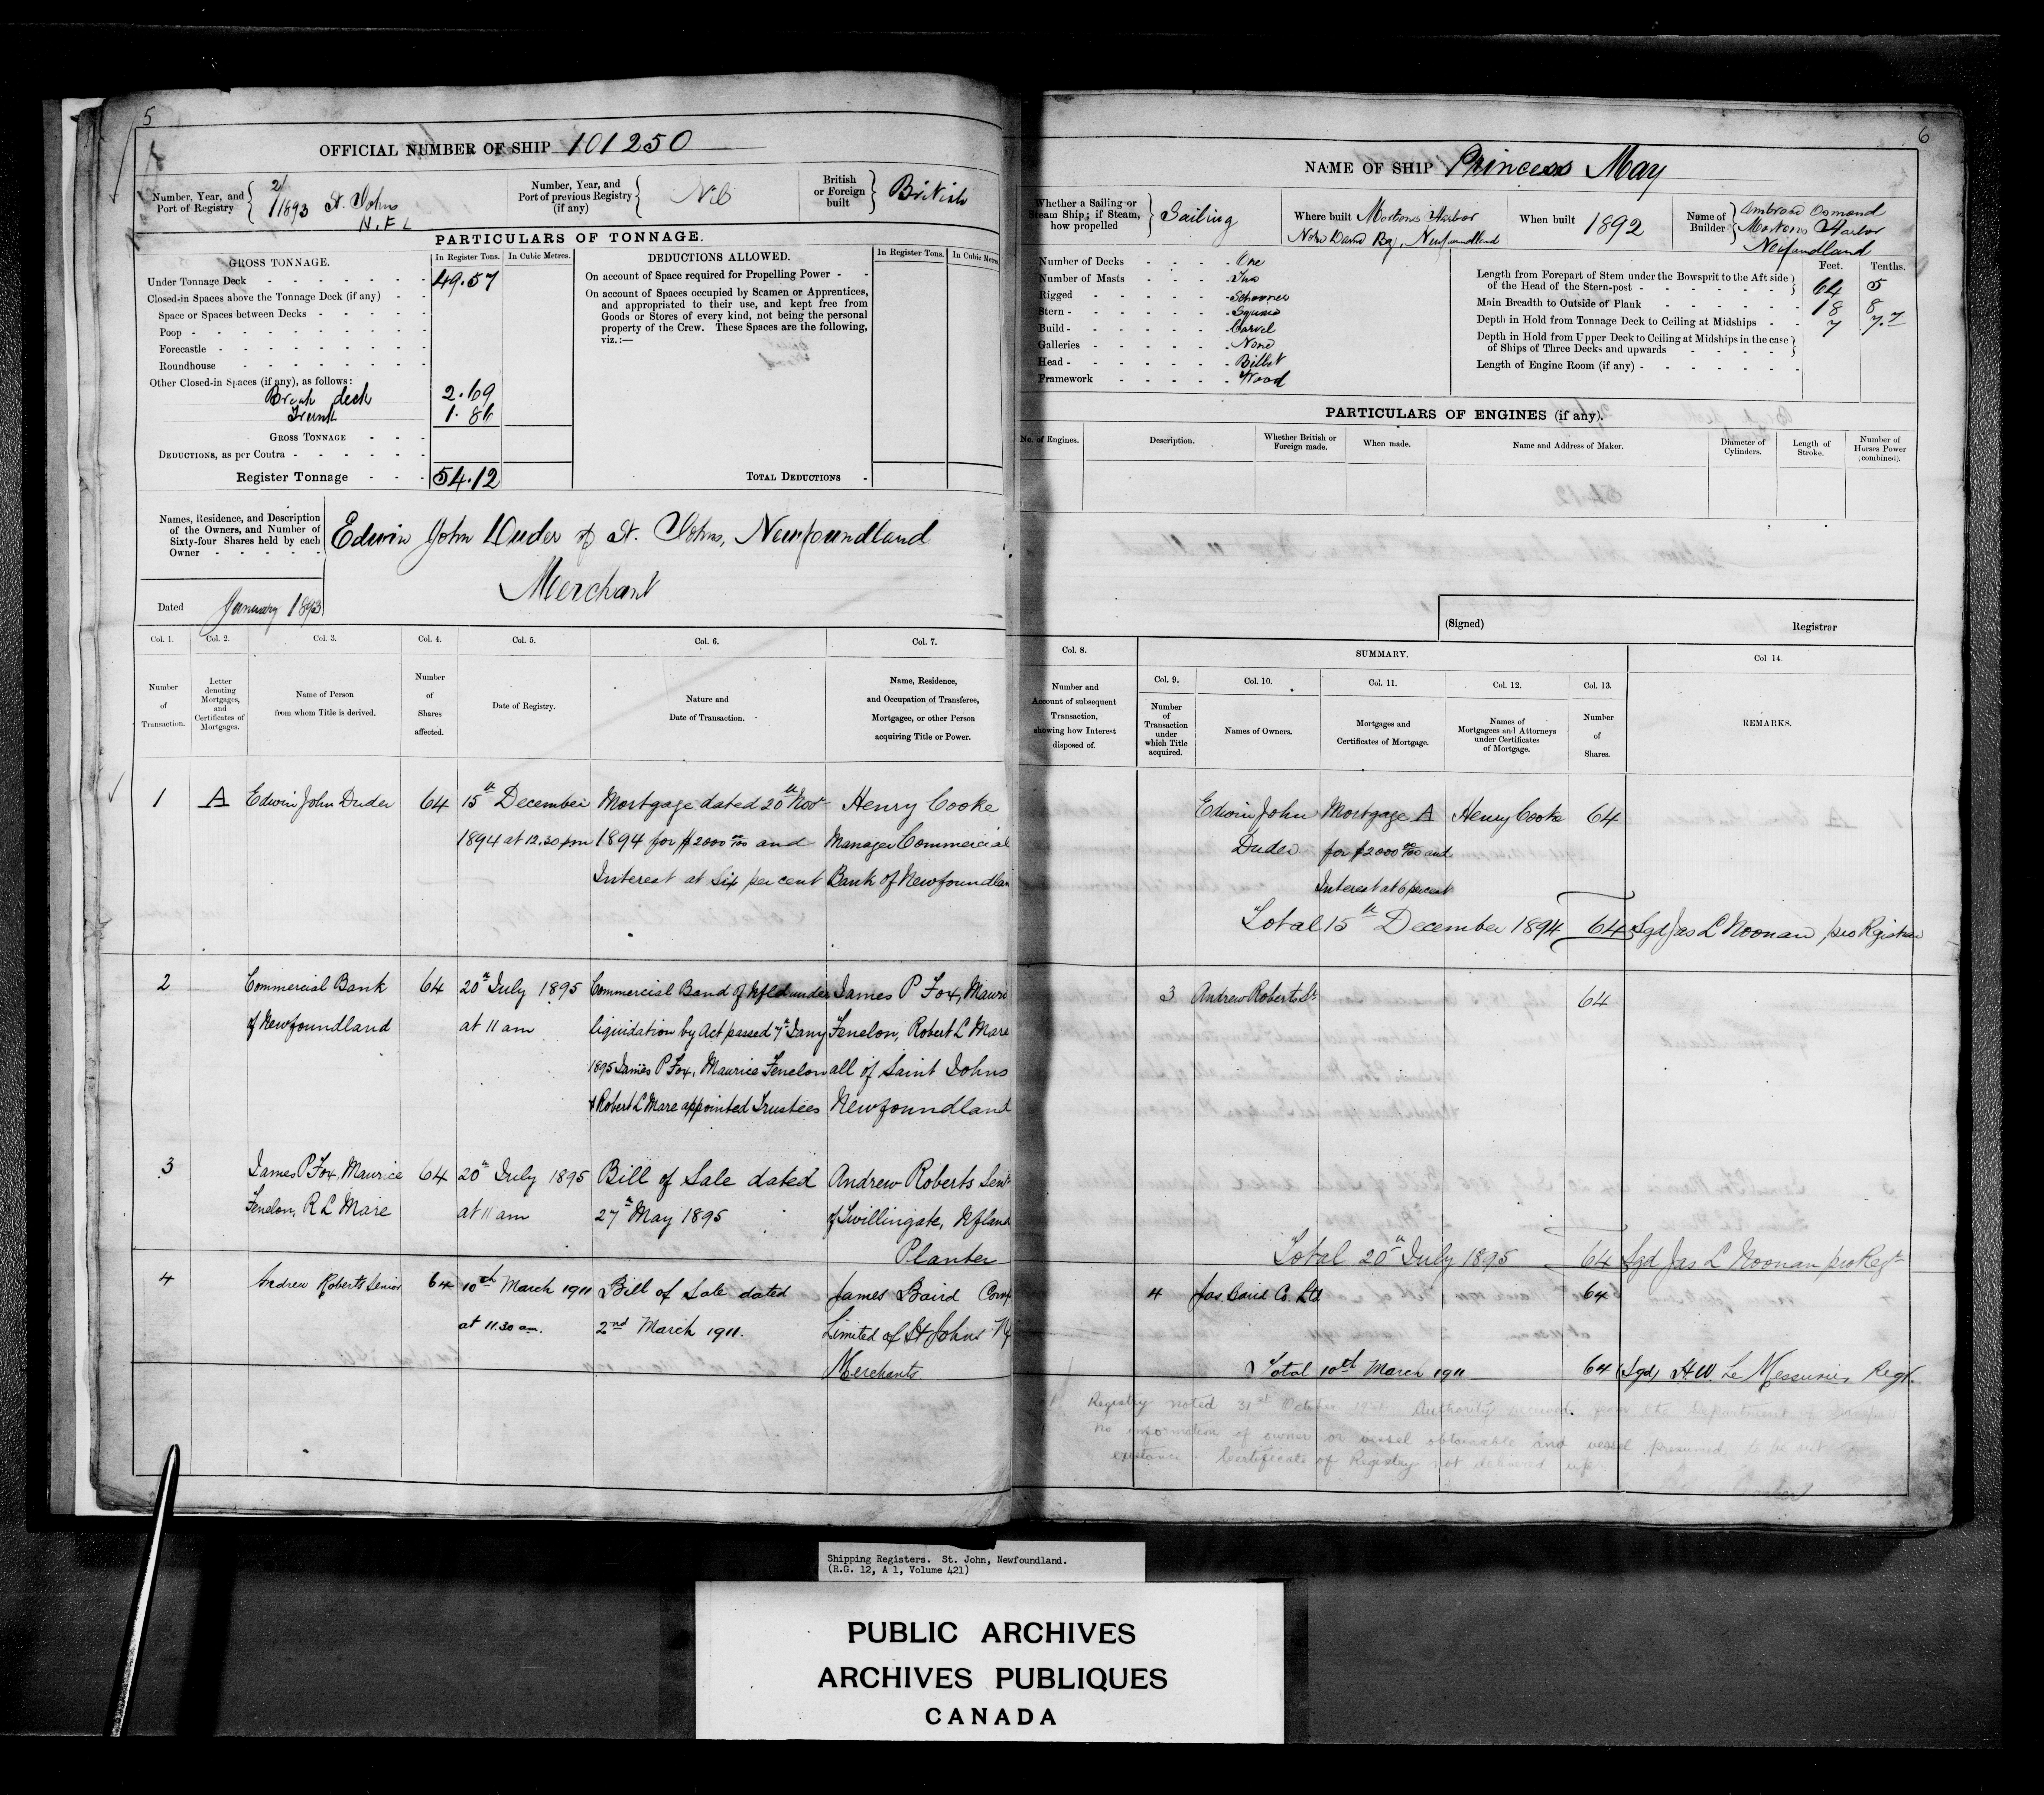 5
OFFICIAL NUMBER OF SHIP 101250
Number, Year, and Port of Registry 2/1893 St. Johns N.F.L
Number, Year, and Port of previous Registry (if any) Nil
British or Foreign built British
PARTICULARS OF TONNAGE.
GROSS TONNAGE. In Register Tons. In Cubic Metres.
Under Tonnage Deck 49.57
Closed-in Spaces above the Tonnage Deck (if any)
Space or Spaces between Decks
Poop
Forecastle
Roundhouse
Other Closed-in Spaces (if any), as follows:
Break deck 2.69
Trunk 1.86
GROSS TONNAGE
DEDUCTIONS, as per Contra
Register Tonnage 54.12
DEDUCTIONS ALLOWED. In Register Tons. In Cubic Metres.
On account of Space required for Propelling Power
On account of Spaces occupied by Seamen or Apprentices,
and appropriated to their use, and kept free from
Goods or Stores of every kind, not being the personal
property of the Crew. These Spaces are the following,
viz.:—
TOTAL DEDUCTIONS
Names, Residence, and Description
of the Owners, and Number of
Sixty-four Shares held by each
Owner
Edwin John Duder of St. Johns, Newfoundland
Merchant
Dated January 1893
Col. 1. Col. 2. Col. 3. Col. 4. Col. 5. Col. 6. Col. 7.
Number of Transaction.
Letter denoting Mortgages, and Certificates of Mortgages.
Name of Person from whom Title is derived.
Number of Shares affected.
Date of Registry.
Nature and Date of Transaction.
Name, Residence, and Occupation of Transferee, Mortgagee, or other Person acquiring Title or Power.
1 A Edwin John Duder 64 15th December Mortgage dated 20th Novr Henry Cooke
1894 at 12.30 pm 1894 for $2000 00/100 and Manager Commercial
Interest at Six per cent Bank of Newfoundlan
2 Commercial Bank 64 20th July 1895 Commercial Band of Nfld under James P Fox, Mauri
of Newfoundland at 11 am liquidation by Act passed 7th Jany Fenelon, Robert L Mare
1895 James P Fox, Maurice Fenelon all of Saint Johns
& Robert L Mare appointed Trustees Newfoundland
3 James P Fox, Maurice 64 20th July 1895 Bill of Sale dated Andrew Roberts Senr
Fenelon, R L Mare at 11 am 27th May 1895 of Twillingate, Nfland
Planter
4 Andrew Roberts Senior 64 10th March 1911 Bill of Sale dated James Baird Comp
at 11.30 am. 2nd March 1911. Limited of St Johns N
Merchants
6
NAME OF SHIP Princess May
Whether a Sailing or Steam Ship; if Steam, how propelled Sailing
Where built Mortons Harbor
Notre Dame Bay, Newfoundland
When built 1892
Name of Builder Ambrose Osmond
Mortons Harbor
Newfoundland
Number of Decks One
Number of Masts Two
Rigged Schooner
Stern Square
Build Carvel
Galleries None
Head Billet
Framework Wood
Feet. Tenths.
Length from Forepart of Stem under the Bowsprit to the Aft side
of the Head of the Stern-post 64 5
Main Breadth to Outside of Plank 18 8
Depth in Hold from Tonnage Deck to Ceiling at Midships 7 7.7
Depth in Hold from Upper Deck to Ceiling at Midships in the case
of Ships of Three Decks and upwards
Length of Engine Room (if any)
PARTICULARS OF ENGINES (if any).
No. of Engines. Description. Whether British or Foreign made. When made. Name and Address of Maker. Diameter of Cylinders. Length of Stroke. Number of Horses Power (combined).
(Signed) Registrar
Col. 8. SUMMARY. Col 14.
Number and Account of subsequent Transaction, showing how Interest disposed of.
Col. 9. Col. 10. Col. 11. Col. 12. Col. 13.
Number of Transaction under which Title acquired.
Names of Owners.
Mortgages and Certificates of Mortgage.
Names of Mortgagees and Attorneys under Certificates of Mortgage.
Number of Shares.
REMARKS.
Edwin John Mortgage A Henry Cooke 64
Duder for $2000 00/100 and
Interest at 6 percent
Total 15th December 1894 64 Sgd Jas L Noonan pro Registrar
3 Andrew Roberts Sr 64
Total 20th July 1895 64 Sgd Jas L Noonan pro Regr
4 Jas Baird Co. Ltd 64
Total 10th March 1911 64 (Sgd) H.W. Le Messurier Regr.
Registry noted 31st October Authority received from the Department of
No information of owner or vessel obtainable and vessel presumed to be not in
existence. Certificate of Registry not delivered up.
Shipping Registers. St. John, Newfoundland.
(R.G. 12, A 1, Volume 421)
PUBLIC ARCHIVES
ARCHIVES PUBLIQUES
CANADA